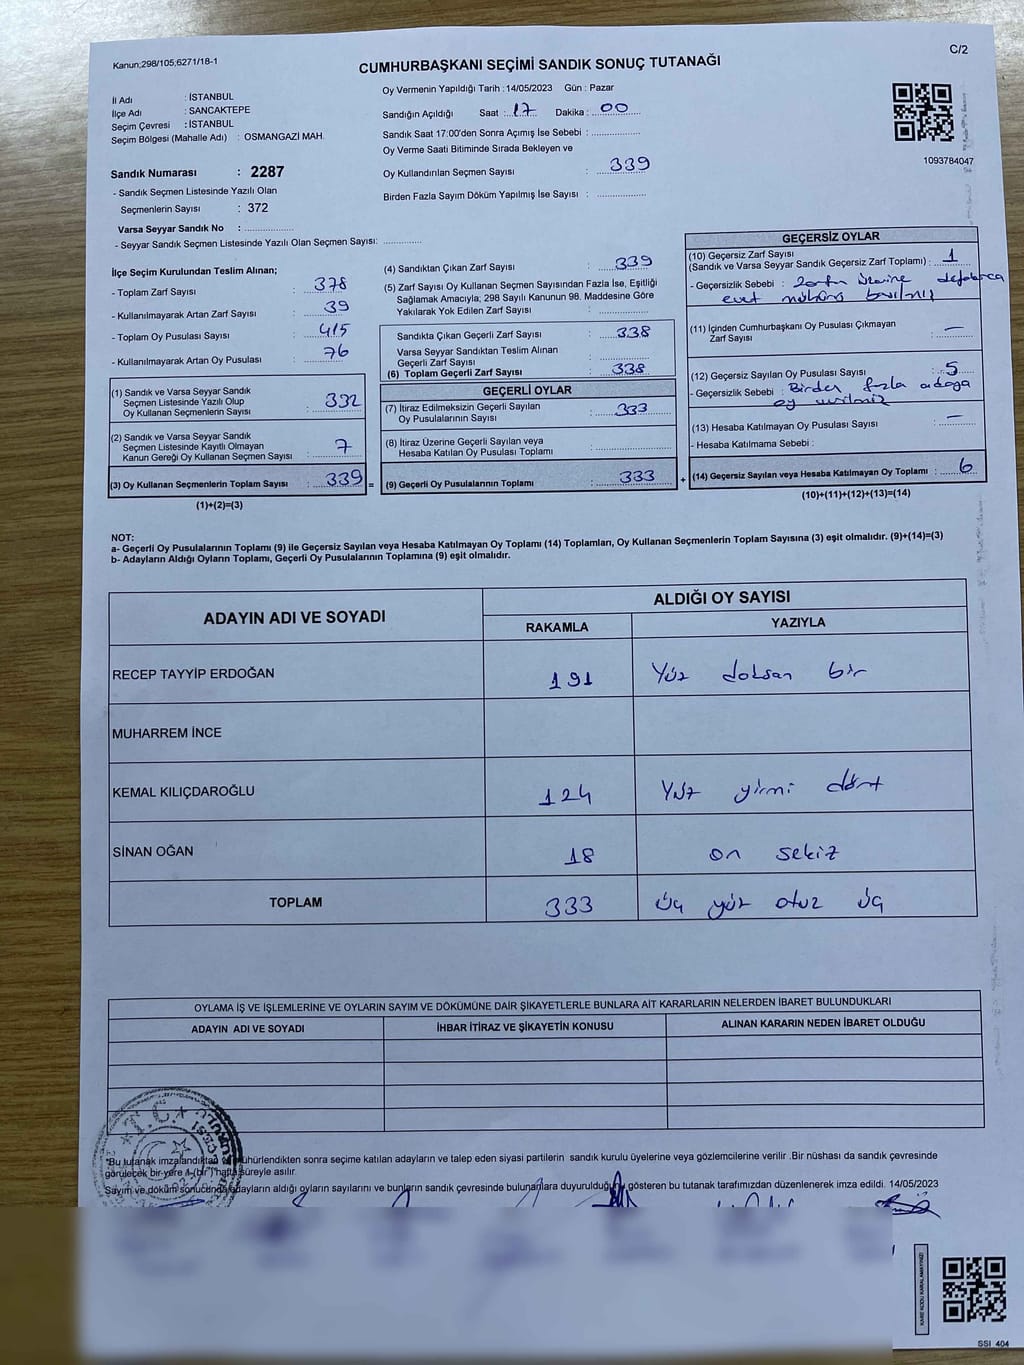 Kanun;298/105;6271/18-1
C/2
CUMHURBAŞKANI SEÇİMİ SANDIK SONUÇ TUTANAĞI
İl Adı : İSTANBUL
İlçe Adı : SANCAKTEPE
Seçim Çevresi : İSTANBUL
Seçim Bölgesi (Mahalle Adı) : OSMANGAZİ MAH.
Sandık Numarası : 2287
- Sandık Seçmen Listesinde Yazılı Olan
Seçmenlerin Sayısı : 372
Varsa Seyyar Sandık No :
- Seyyar Sandık Seçmen Listesinde Yazılı Olan Seçmen Sayısı:
Oy Vermenin Yapıldığı Tarih : 14/05/2023 Gün : Pazar
Sandığın Açıldığı Saat : 17 Dakika : 00
Sandık Saat 17:00'den Sonra Açımış İse Sebebi :
Oy Verme Saati Bitiminde Sırada Bekleyen ve
Oy Kullandırılan Seçmen Sayısı : 339
Birden Fazla Sayım Döküm Yapılmış İse Sayısı :
1093784047
İlçe Seçim Kurulundan Teslim Alınan;
- Toplam Zarf Sayısı : 378
- Kullanılmayarak Artan Zarf Sayısı : 39
- Toplam Oy Pusulası Sayısı : 415
- Kullanılmayarak Artan Oy Pusulası : 76
(1) Sandık ve Varsa Seyyar Sandık
Seçmen Listesinde Yazılı Olup
Oy Kullanan Seçmenlerin Sayısı : 332
(2) Sandık ve Varsa Seyyar Sandık
Seçmen Listesinde Kayıtlı Olmayan
Kanun Gereği Oy Kullanan Seçmen Sayısı : 7
(3) Oy Kullanan Seçmenlerin Toplam Sayısı : 339 =
(1)+(2)=(3)
(4) Sandıktan Çıkan Zarf Sayısı : 339
(5) Zarf Sayısı Oy Kullanan Seçmen Sayısından Fazla İse, Eşitliği
Sağlamak Amacıyla, 298 Sayılı Kanunun 98. Maddesine Göre
Yakılarak Yok Edilen Zarf Sayısı :
Sandıkta Çıkan Geçerli Zarf Sayısı : 338
Varsa Seyyar Sandıktan Teslim Alınan
Geçerli Zarf Sayısı :
(6) Toplam Geçerli Zarf Sayısı : 338
GEÇERLİ OYLAR
(7) İtiraz Edilmeksizin Geçerli Sayılan
Oy Pusulasının Sayısı : 333
(8) İtiraz Üzerine Geçerli Sayılan veya
Hesaba Katılan Oy Pusulası Toplamı :
(9) Geçerli Oy Pusulalarının Toplamı : 333 +
GEÇERSİZ OYLAR
(10) Geçersiz Zarf Sayısı
(Sandık ve Varsa Seyyar Sandık Geçersiz Zarf Toplamı) : 1
- Geçersizlik Sebebi : Zarfın üzerine defalarca
evet mührü basılmış
(11) İçinden Cumhurbaşkanı Oy Pusulası Çıkmayan
Zarf Sayısı : —
(12) Geçersiz Sayılan Oy Pusulası Sayısı : 5
- Geçersizlik Sebebi : Birden fazla adaya
oy verilmiş
(13) Hesaba Katılmayan Oy Pusulası Sayısı : —
- Hesaba Katılmama Sebebi :
(14) Geçersiz Sayılan veya Hesaba Katılmayan Oy Toplamı : 6
(10)+(11)+(12)+(13)=(14)
NOT:
a- Geçerli Oy Pusulalarının Toplamı (9) ile Geçersiz Sayılan veya Hesaba Katılmayan Oy Toplamı (14) Toplamları, Oy Kullanan Seçmenlerin Toplam Sayısına (3) eşit olmalıdır. (9)+(14)=(3)
b- Adayların Aldığı Oyların Toplamı, Geçerli Oy Pusulalarının Toplamına (9) eşit olmalıdır.
ADAYIN ADI VE SOYADI
ALDIĞI OY SAYISI
RAKAMLA YAZIYLA
RECEP TAYYİP ERDOĞAN 191 Yüz doksan bir
MUHARREM İNCE
KEMAL KILIÇDAROĞLU 124 Yüz yirmi dört
SİNAN OĞAN 18 on sekiz
TOPLAM 333 üç yüz otuz üç
OYLAMA İŞ VE İŞLEMLERİNE VE OYLARIN SAYIM VE DÖKÜMÜNE DAİR ŞİKAYETLERLE BUNLARA AİT KARARLARIN NELERDEN İBARET BULUNDUKLARI
ADAYIN ADI VE SOYADI İHBAR İTİRAZ VE ŞİKAYETİN KONUSU ALINAN KARARIN NEDEN İBARET OLDUĞU
T.C.
*Bu tutanak imzalandıktan ve mühürlendikten sonra seçime katılan adayların ve talep eden siyasi partilerin sandık kurulu üyelerine veya gözlemcilerine verilir .Bir nüshası da sandık çevresinde
görülecek bir yere 1 (bir) hafta süreyle asılır.
Sayım ve döküm sonucunda adayların aldığı oyların sayılarını ve bunların sandık çevresinde bulunanlara duyurulduğunu gösteren bu tutanak tarafımızdan düzenlenerek imza edildi. 14/05/2023
KARE KODU KARALAMAYINIZ!
SSI 404